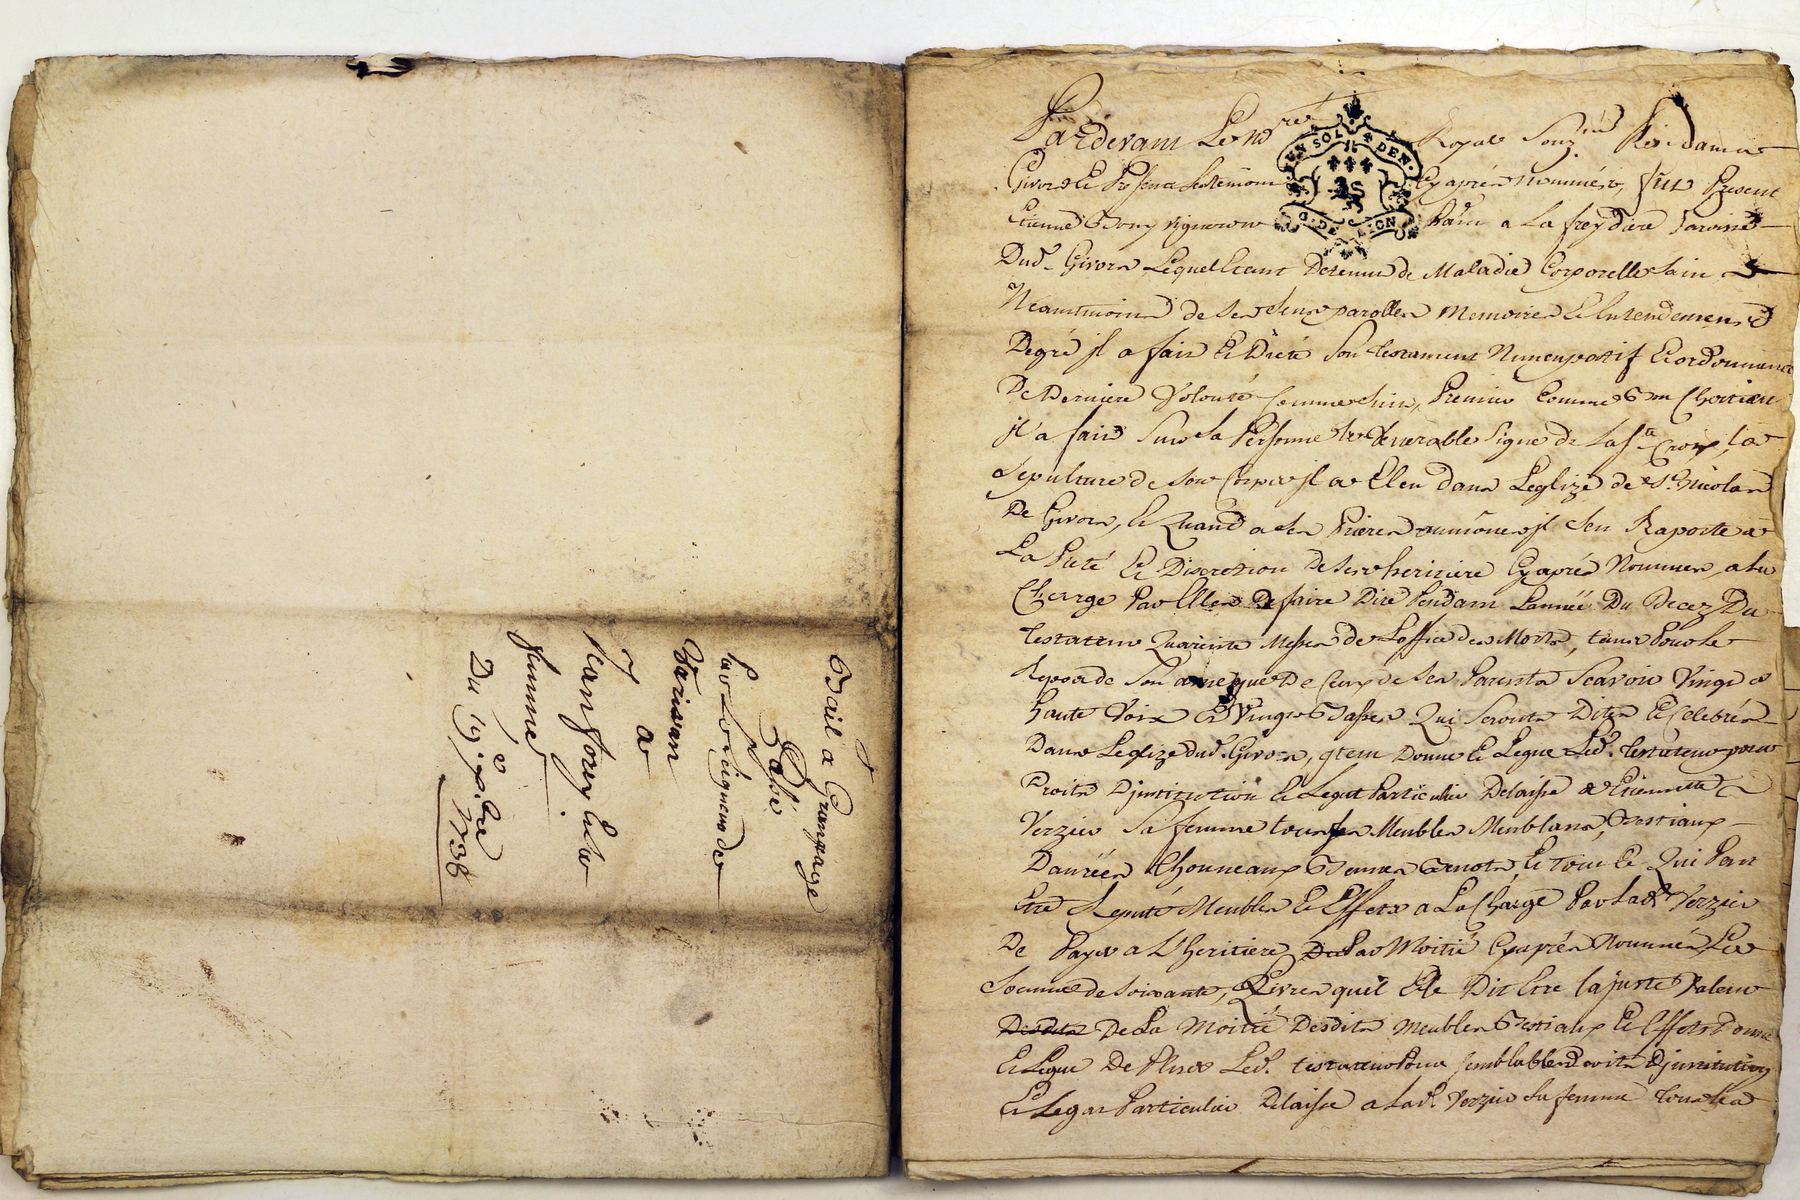 Bail a Grangage
Passé
par Le Seigneur de
Varissan
a
Jean fory et sa
femme
Du 19e xbre 1738
Pardevant Le No^re Royal Souz.^né Residant a
UN SOL DEN.
G. DE LYON
Givors Et Presence des temoins Cy aprés Nommés, fut Present
Etienne Bony vigneron a La freydiere Paroisse
Dud. Givors Lequel Etant Detenu de Maladie Corporelle Sain
Neantmoins de Ses Sens parolles Memoires Et Entendement
De gré jl a fait Et Dicté Son testament Nuncupatif Et ordonnance
De Derniere Volonté Comme Suit, Premier Comme Bon Chretien
jl a fait Sur Sa Personne Le Venerable Signe de La S^te Croix, La
Sepulture de Son Corps jl a Eleu dans Leglize de St. Nicolas
De Givors, Et Quand a Ses Prieres aumônes jl Sen Raporte a
La Pieté Et Discretion De Ses heritiere Cy aprés Nommés, a La
Charge Par Elles De faire Dire Pendant Lannée Du Decez Du
testateur Quarante Messes de Loffice des Morts, tant Pour Le
Repos de Son ame que De Ceux de Ses Parents Scavoir Vingt a
haute Voix Et Vingt Basses Qui Seront Dites Et Celebrés
Dans Leglize dud. Givors, jtem Donne Et Legue Led. testateur pour
Droits Djnstitution Et Legat Particulier Delaisse a Etiennette
Verzier Sa femme tous Ses Meubles Meublans, Bestiaux
Danrées thonneaux Bennes Et tout Ce Qui Peut
Etre Reputé Meubles Et Effets a La Charge Par Lad. Verzier
De Payer a L'heritiere Par Moitié Cy aprés Nommés La
Somme de Soixante Livres quil Dit Etre La juste Valeur
Desdits De La Moitié Desdits Meubles Bestiaux Et Effets Donne
Et Legue De Plus Led. testateur Pour Semblables Droits Djnstitution
Et Legat Particulier Delaisse a Lad. Verzier Sa femme tous La